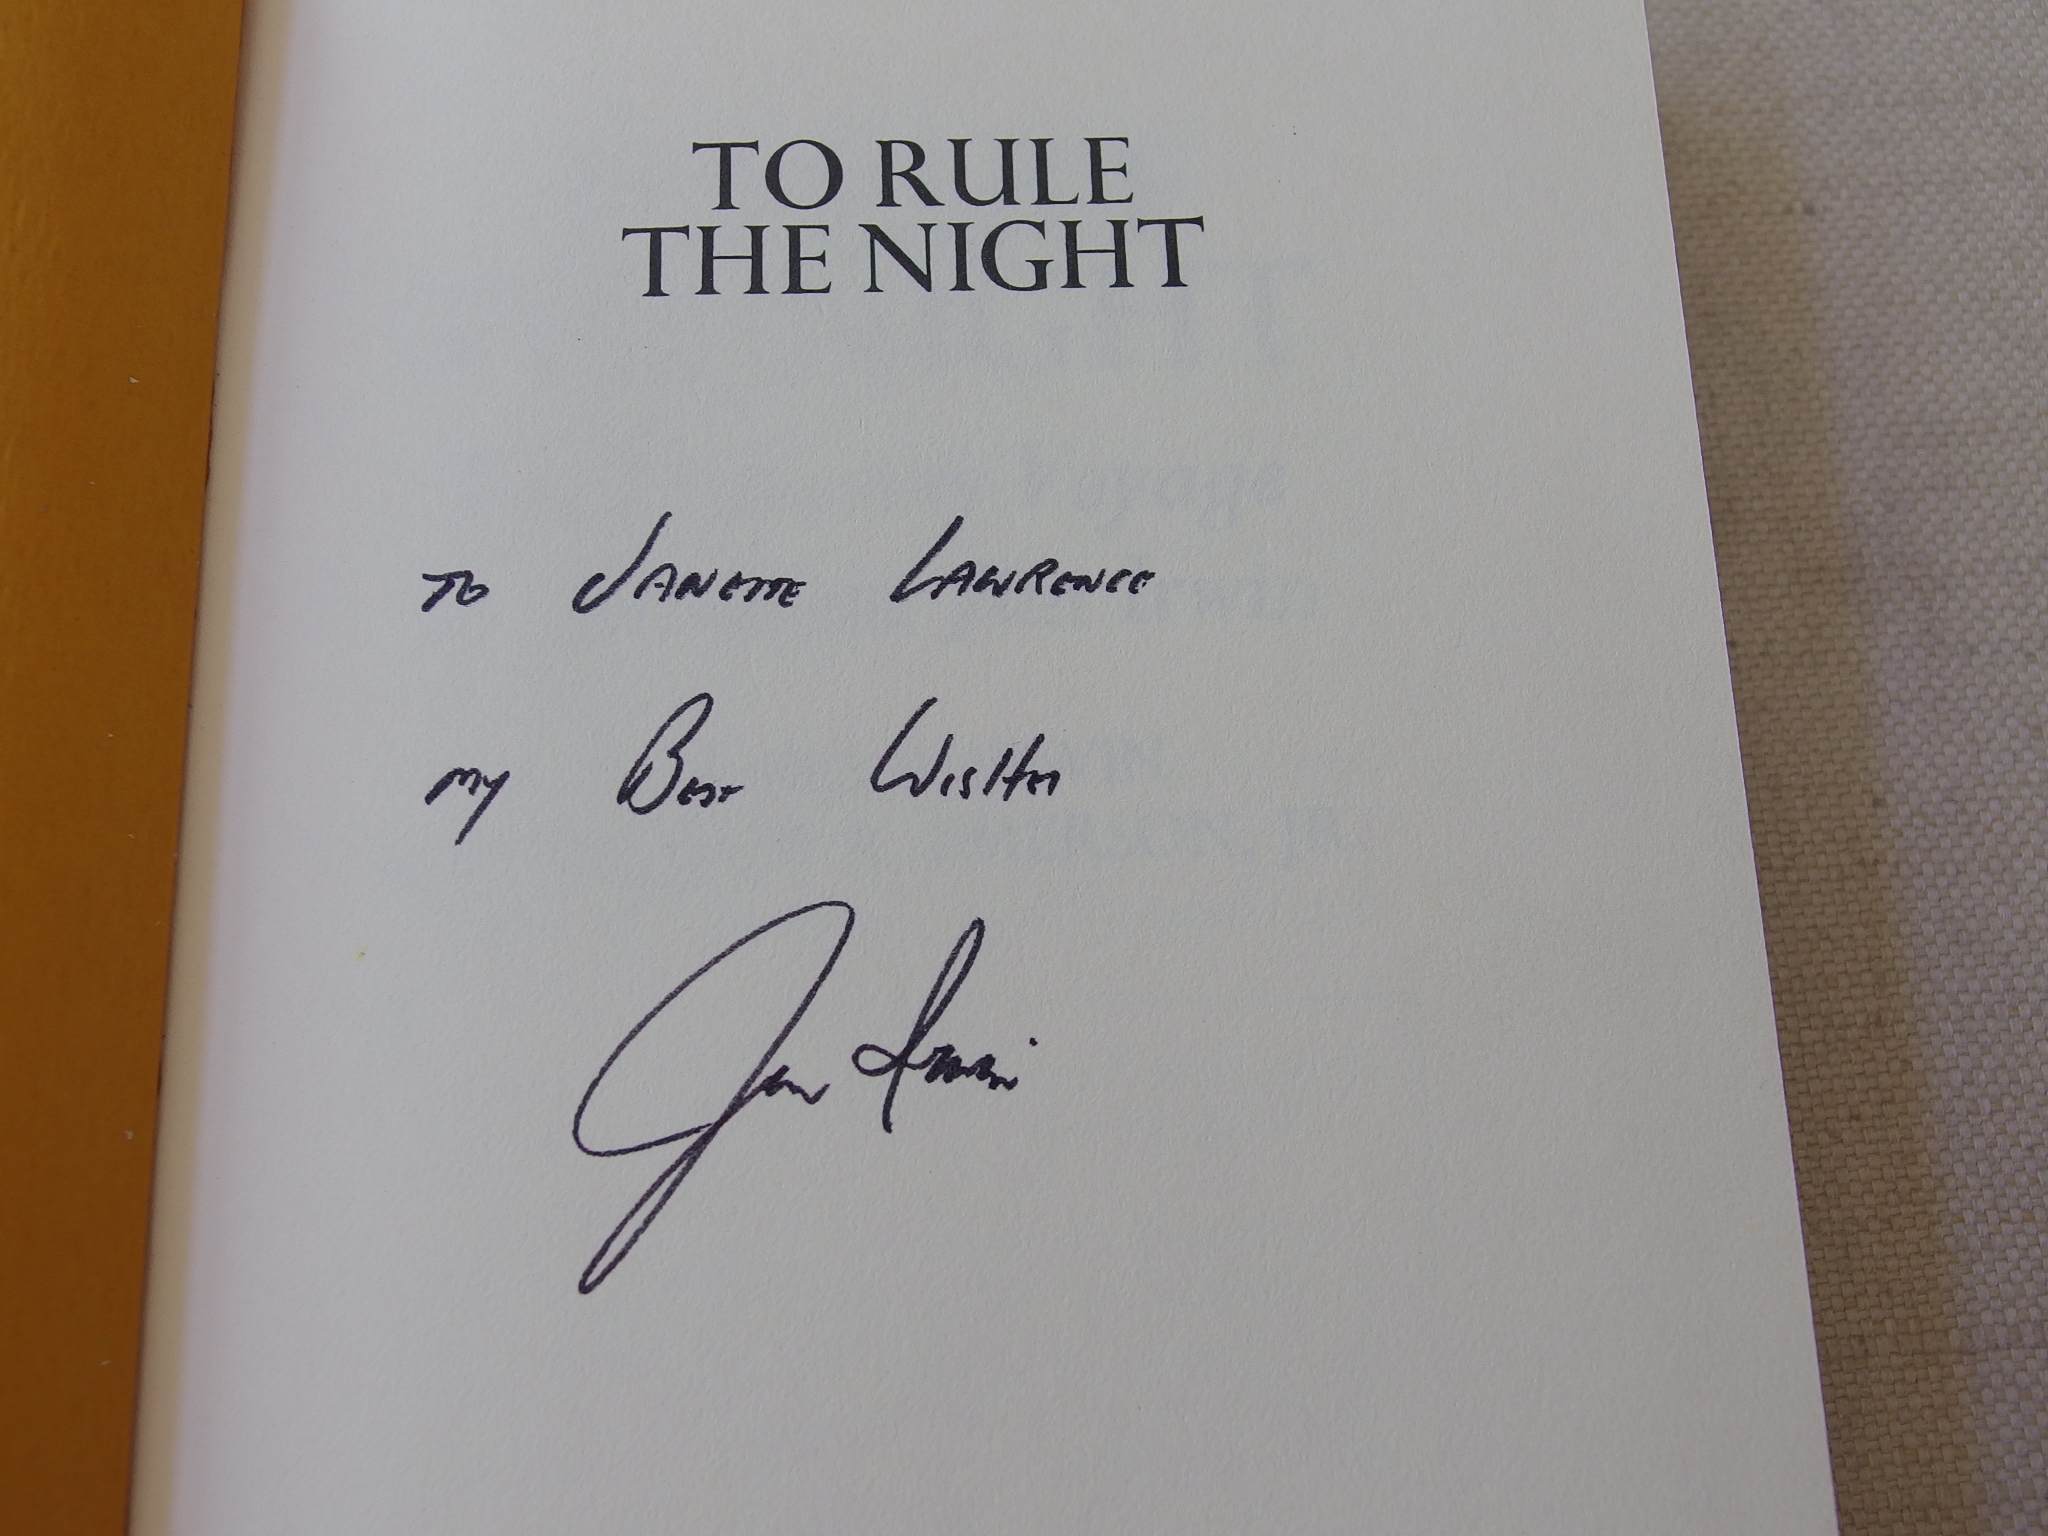 TO RULE
THE NIGHT
TO JANETTE LAWRENCE
MY BEST WISHES
Jim Irwin